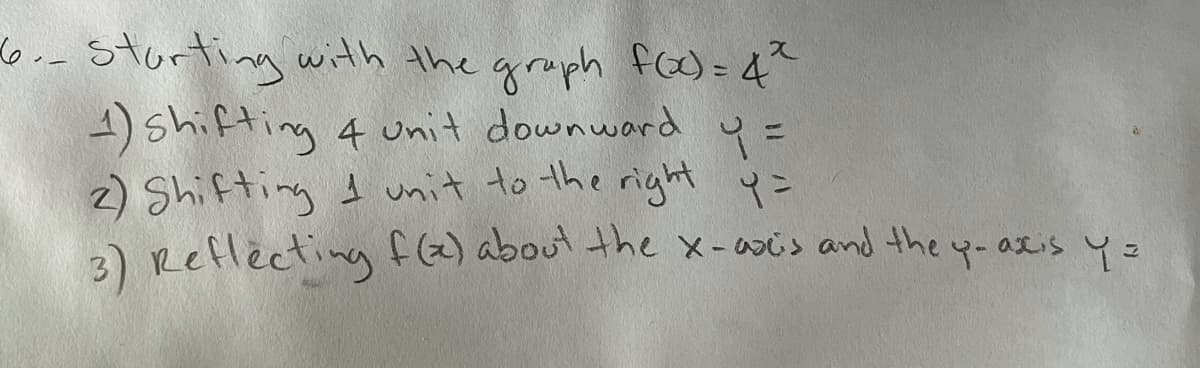 6.- Starting with the graph f(x) = 4ˣ
1) shifting 4 unit downward y =
2) Shifting 1 unit to the right y =
3) Reflecting f(x) about the x-axis and the y-axis y =